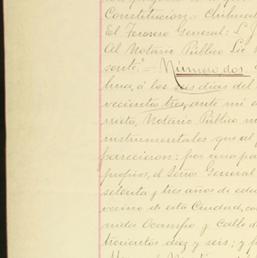 Constitución = Chihua
El Tesorero General: L. J
Al Notario Público Lic
sente." = Número dos
hua, á los seis dias del
vecientos tres, ante mi
rrieta, Notario Público
instrumentales que al
parecieron: por una pa
propios, el Señor General
setenta y tres años de eda
vecino de esta Ciudad, co
nida Ocampo y Calle d
trocientos diez y seis; y p